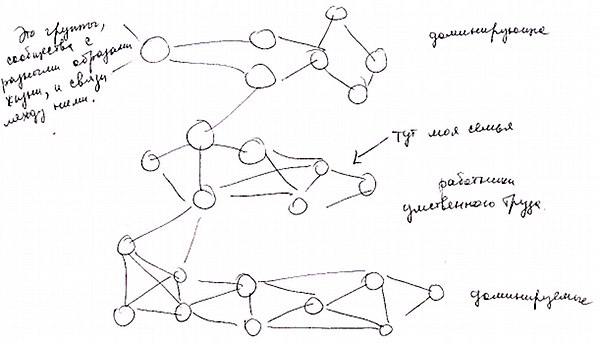 Это группы,
сообщества с
разными образами
жизни, и связи
между ними.
доминирующие
тут моя семья
работники
умственного труда.
доминируемые